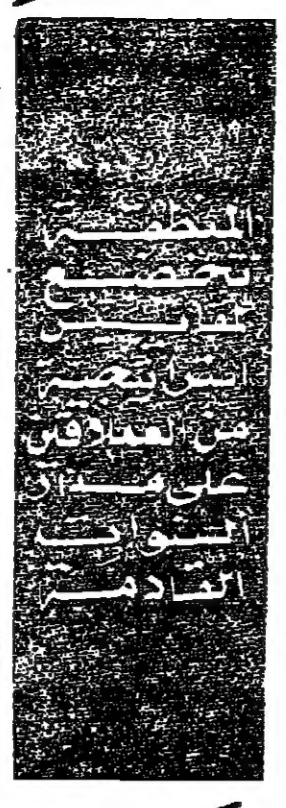 المنطقة
تخضع
لمقاييس
استراتيجية
من العملاقين
على مدار
السنوات
القادمة